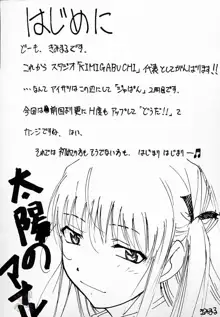 はじめに
どーも、きみまるです。
これから スタジオ「KIMIGABUCHI」代表としてがんばります!!
…なんて アイサツはこの辺にして「じゃぱん」2冊目です。
今回は前回より更に H度も アップして「どうだ!!」て
カンジですね、はい。
それでは 初めての方も そうでない方も、はじまり はじまりー♫
太陽の
アナル